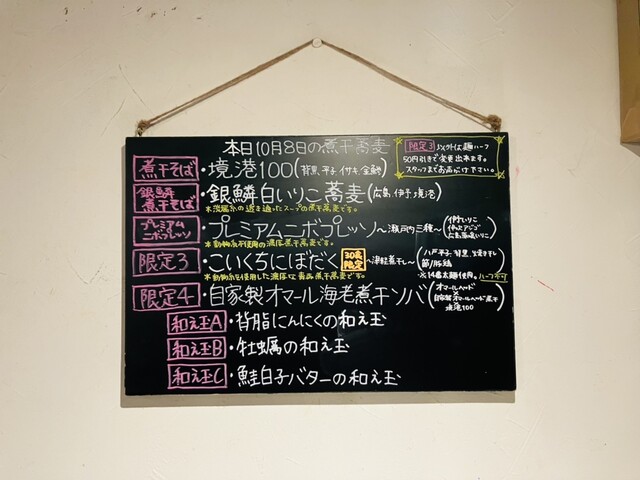 本日10月8日の煮干蕎麦
限定3 以外は麺ハーフ
50円引きで変更出来ます。
スタッフまでお申し付け下さい。
煮干そば ・境港100(背黒、平子、イサキ、金鯵)
銀鱗煮干そば ・銀鱗白いりこ蕎麦(広島、伊予、境港)
プレミアムニボプレッソ ・プレミアムニボプレッソ〜瀬戸内三種〜
※動物系不使用の濃厚煮干蕎麦です。
限定3 ・こいくちにぼだく 30名限定 〜津軽煮干〜
八戸平子、背黒、焼き干し
※動物系を使用した濃厚な 煮干蕎麦です。
※14番太麺使用。ハーフ不可
限定4 ・自家製オマール海老煮干ソバ
オマールヘッド
×
自家製オマールヘッド煮干
境港100
和え玉A ・背脂にんにくの和え玉
和え玉B ・牡蠣の和え玉
和え玉C ・鮭白子バターの和え玉